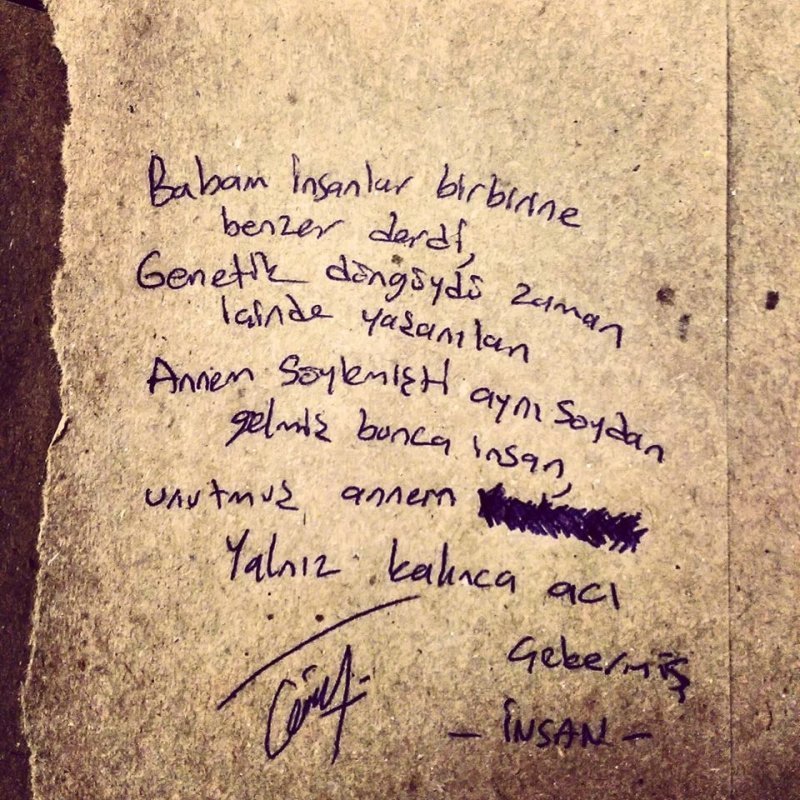 Babam insanlar birbirine
benzer derdi,
Genetik döngüydü zaman
içinde yaşanılan
Annem söylemişti aynı soydan
gelmiş bunca insan,
unutmuş annem
Yalnız kalınca acı
Gebermiş
- İNSAN -